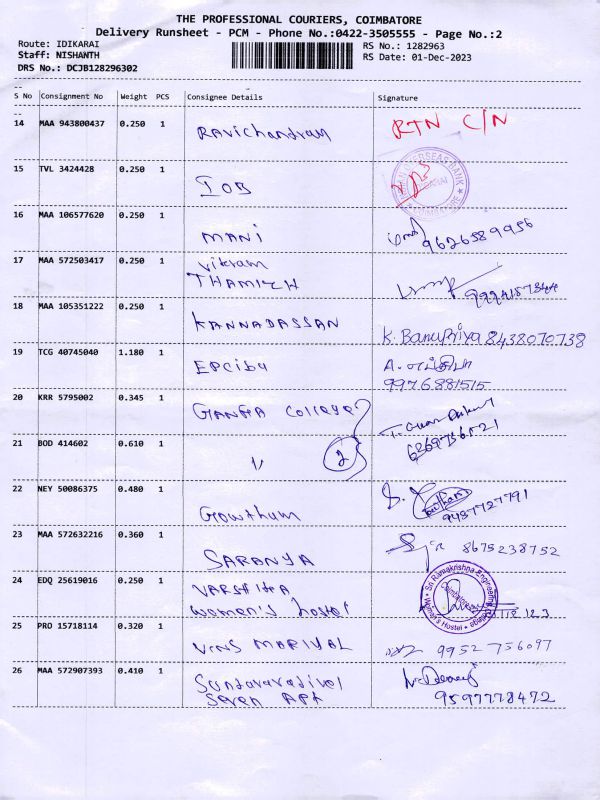 THE PROFESSIONAL COURIERS, COIMBATORE
Delivery Runsheet - PCM - Phone No.:0422-3505555 - Page No.:2
Route: IDIKARAI
RS No.: 1282963
Staff: NISHANTH
RS Date: 01-Dec-2023
DRS No.: DCJB128296302
S No Consignment No Weight PCS Consignee Details Signature
14 MAA 943800437 0.250 1 Ravichandran RTN C/N
15 TVL 3424428 0.250 1 IOB
16 MAA 106577620 0.250 1 MANI 9626589956
17 MAA 572503417 0.250 1 Vikram
THAMIZH
18 MAA 105351222 0.250 1 KANNADASSAN K. BanuPriya 8438070738
19 TCG 40745040 1.180 1 EPciby A.
9976881515
20 KRR 5795002 0.345 1 GANGA College
21 BOD 414602 0.610 1 " 2 6369736521
22 NEY 50086375 0.480 1 Gowtham 9487727791
23 MAA 572632216 0.360 1 SARANYA 8675238752
24 EDQ 25619016 0.250 1 VARSHITHA
Women's hostel
Sri Ramakrishna Engineering College
Women's Hostel
25 PRO 15718114 0.320 1 9952756097
26 MAA 572907393 0.410 1 Sundaravadivel
Seven Apt 9597778472